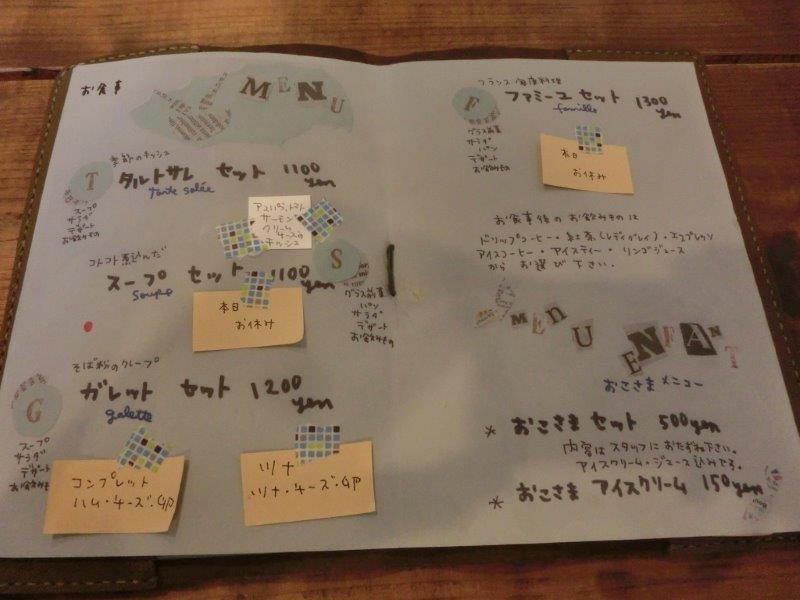 お食事
MENU
季節のキッシュ
T
タルトサレ セット 1100 yen
Tarte salée
スープ
サラダ
デザート
お飲みもの
アスパラ、トマト
サーモン
クリーム
チーズの
キッシュ
コトコト煮込んだ
S
スープ セット 1100 yen
Soupe
グラス前菜
パン
サラダ
デザート
お飲みもの
本日
お休み
そば粉のクレープ
G
ガレット セット 1200 yen
galette
スープ
サラダ
デザート
お飲みもの
コンプレット
ハム・チーズ・卵
ツナ
ツナ・チーズ・卵
フランス家庭料理
F
ファミーユ セット 1300 yen
famille
グラス前菜
サラダ
パン
デザート
お飲みもの
本日
お休み
お食事後のお飲みものは
ドリップコーヒー・紅茶(レディグレイ)・エスプレッソ
アイスコーヒー・アイスティー・リンゴジュース
からお選び下さい。
MENU ENFANT
おこさまメニュー
* おこさま セット 500yen
内容はスタッフにおたずね下さい。
アイスクリーム・ジュース込みです。
* おこさま アイスクリーム 150yen